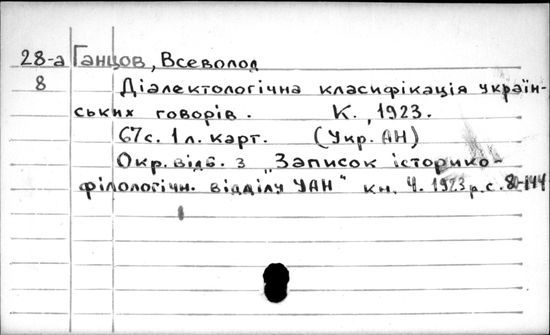 28-а Ганцов, Всеволод
8 Діалектологічна класифікація україн-
ських говорів. К., 1923.
67с. 1л. карт. (Укр. АН)
Окр. відб. з „Записок історико-
філологічн. відділу УАН" кн. 4. 1923 р. с. 80-144